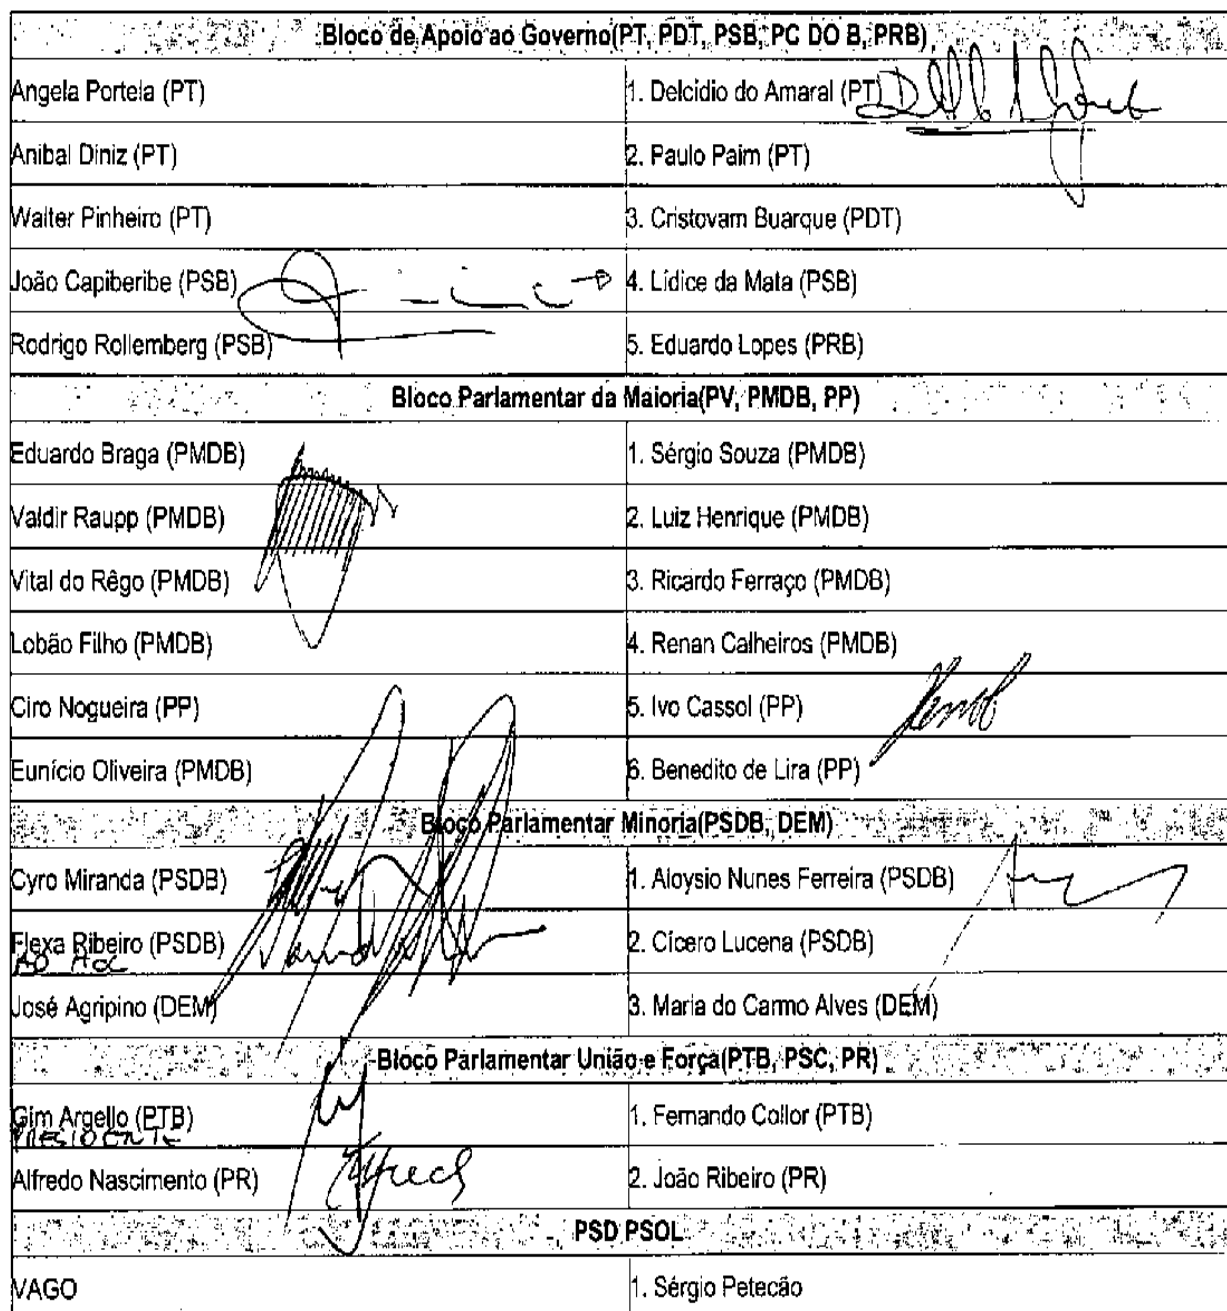 Bloco de Apoio ao Governo(PT, PDT, PSB, PC DO B, PRB)
Angela Portela (PT)
1. Delcídio do Amaral (PT)
Anibal Diniz (PT)
2. Paulo Paim (PT)
Walter Pinheiro (PT)
3. Cristovam Buarque (PDT)
João Capiberibe (PSB)
4. Lídice da Mata (PSB)
Rodrigo Rollemberg (PSB)
5. Eduardo Lopes (PRB)
Bloco Parlamentar da Maioria(PV, PMDB, PP)
Eduardo Braga (PMDB)
1. Sérgio Souza (PMDB)
Valdir Raupp (PMDB)
2. Luiz Henrique (PMDB)
Vital do Rêgo (PMDB)
3. Ricardo Ferraço (PMDB)
Lobão Filho (PMDB)
4. Renan Calheiros (PMDB)
Ciro Nogueira (PP)
5. Ivo Cassol (PP)
Eunício Oliveira (PMDB)
6. Benedito de Lira (PP)
Bloco Parlamentar Minoria(PSDB, DEM)
Cyro Miranda (PSDB)
1. Aloysio Nunes Ferreira (PSDB)
Flexa Ribeiro (PSDB)
2. Cícero Lucena (PSDB)
José Agripino (DEM)
3. Maria do Carmo Alves (DEM)
Bloco Parlamentar União e Força(PTB, PSC, PR)
Gim Argello (PTB)
PRESIDENTE
1. Fernando Collor (PTB)
Alfredo Nascimento (PR)
2. João Ribeiro (PR)
PSD PSOL
VAGO
1. Sérgio Petecão